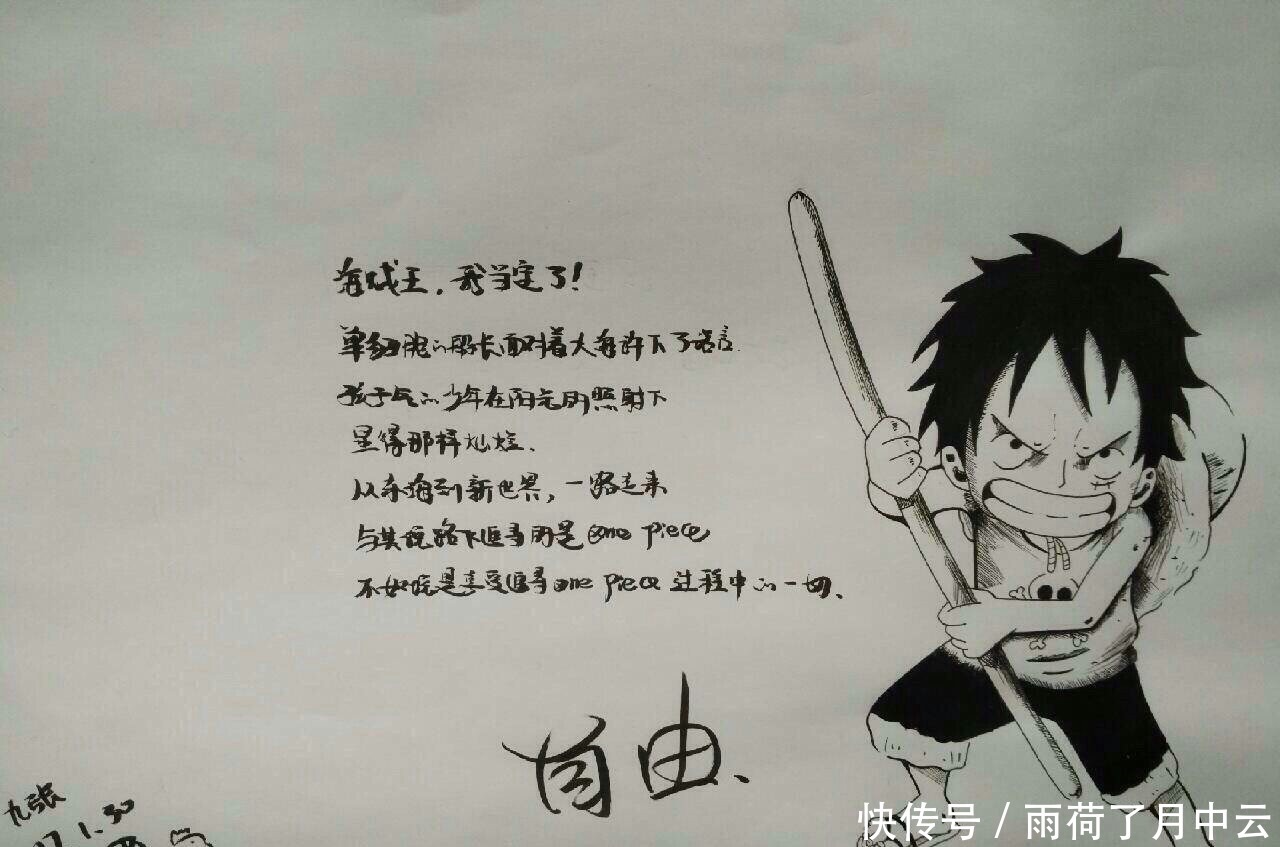 海贼王，我当定了！
单细胞的船长面对着大海许下了诺言
孩子气的少年在阳光的照射下
显得那样灿烂、
从东海到新世界，一路走来
与其说路飞追寻的是 one piece
不如说是享受追寻 one piece 过程中的一切、
自由、
九张
1.30
快传号 / 雨荷了月中云